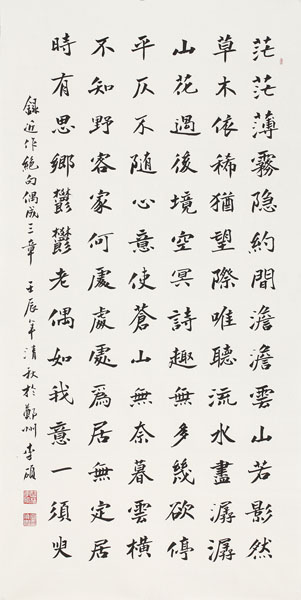 茫茫薄霧隐約間澹澹雲山若影然
草木依稀猶望際唯聽流水盡潺潺
山花過後境空冥詩趣無多幾欲停
平仄不隨心意使蒼山無奈暮雲橫
不知野客家何處處處爲居無定居
時有思鄉鬱鬱老偶如我意一須臾
錄近作絕句偶成三章 壬辰年清秋於鄭州 李